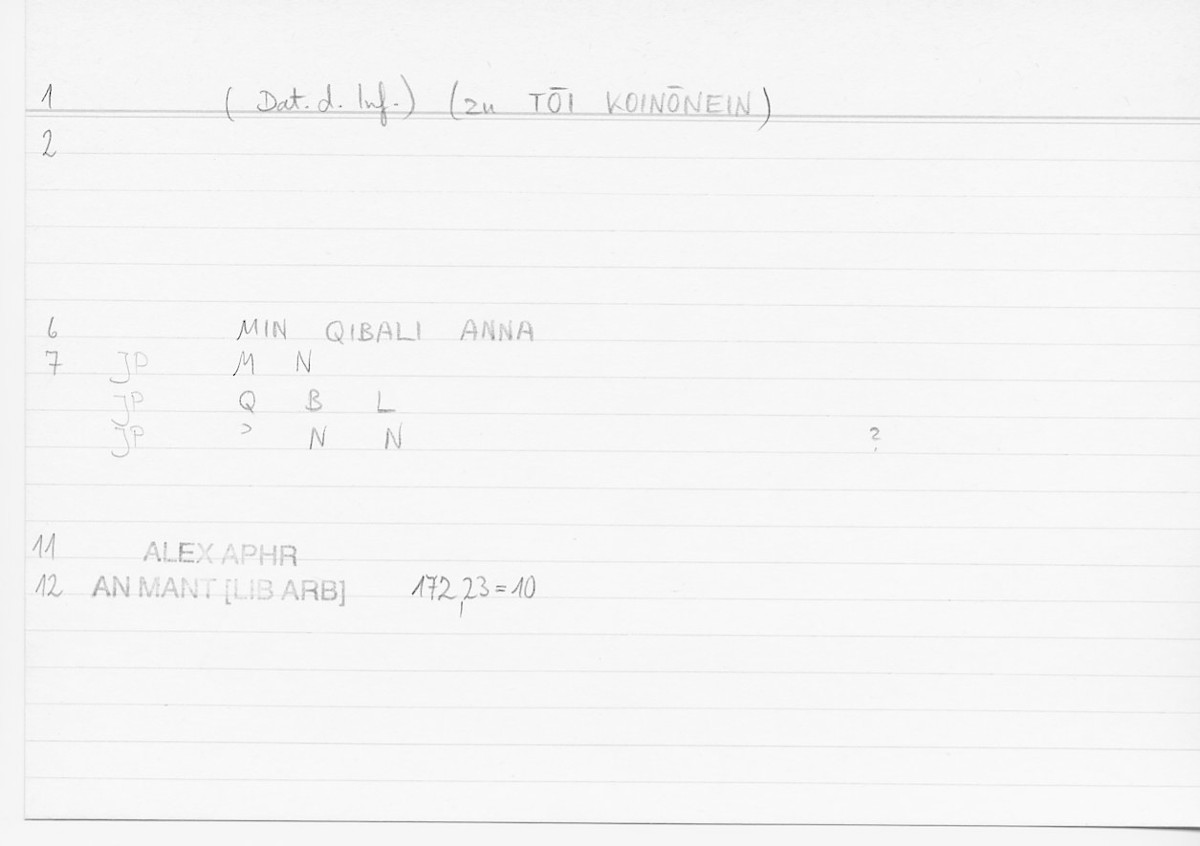 1 (Dat. d. Inf.) (zu TŌI KOINŌNEIN)
2
6 MIN QIBALI ANNA
7 JP M N
JP Q B L
JP ʾ N N ?
11 ALEX APHR
12 AN MANT [LIB ARB] 172,23=10